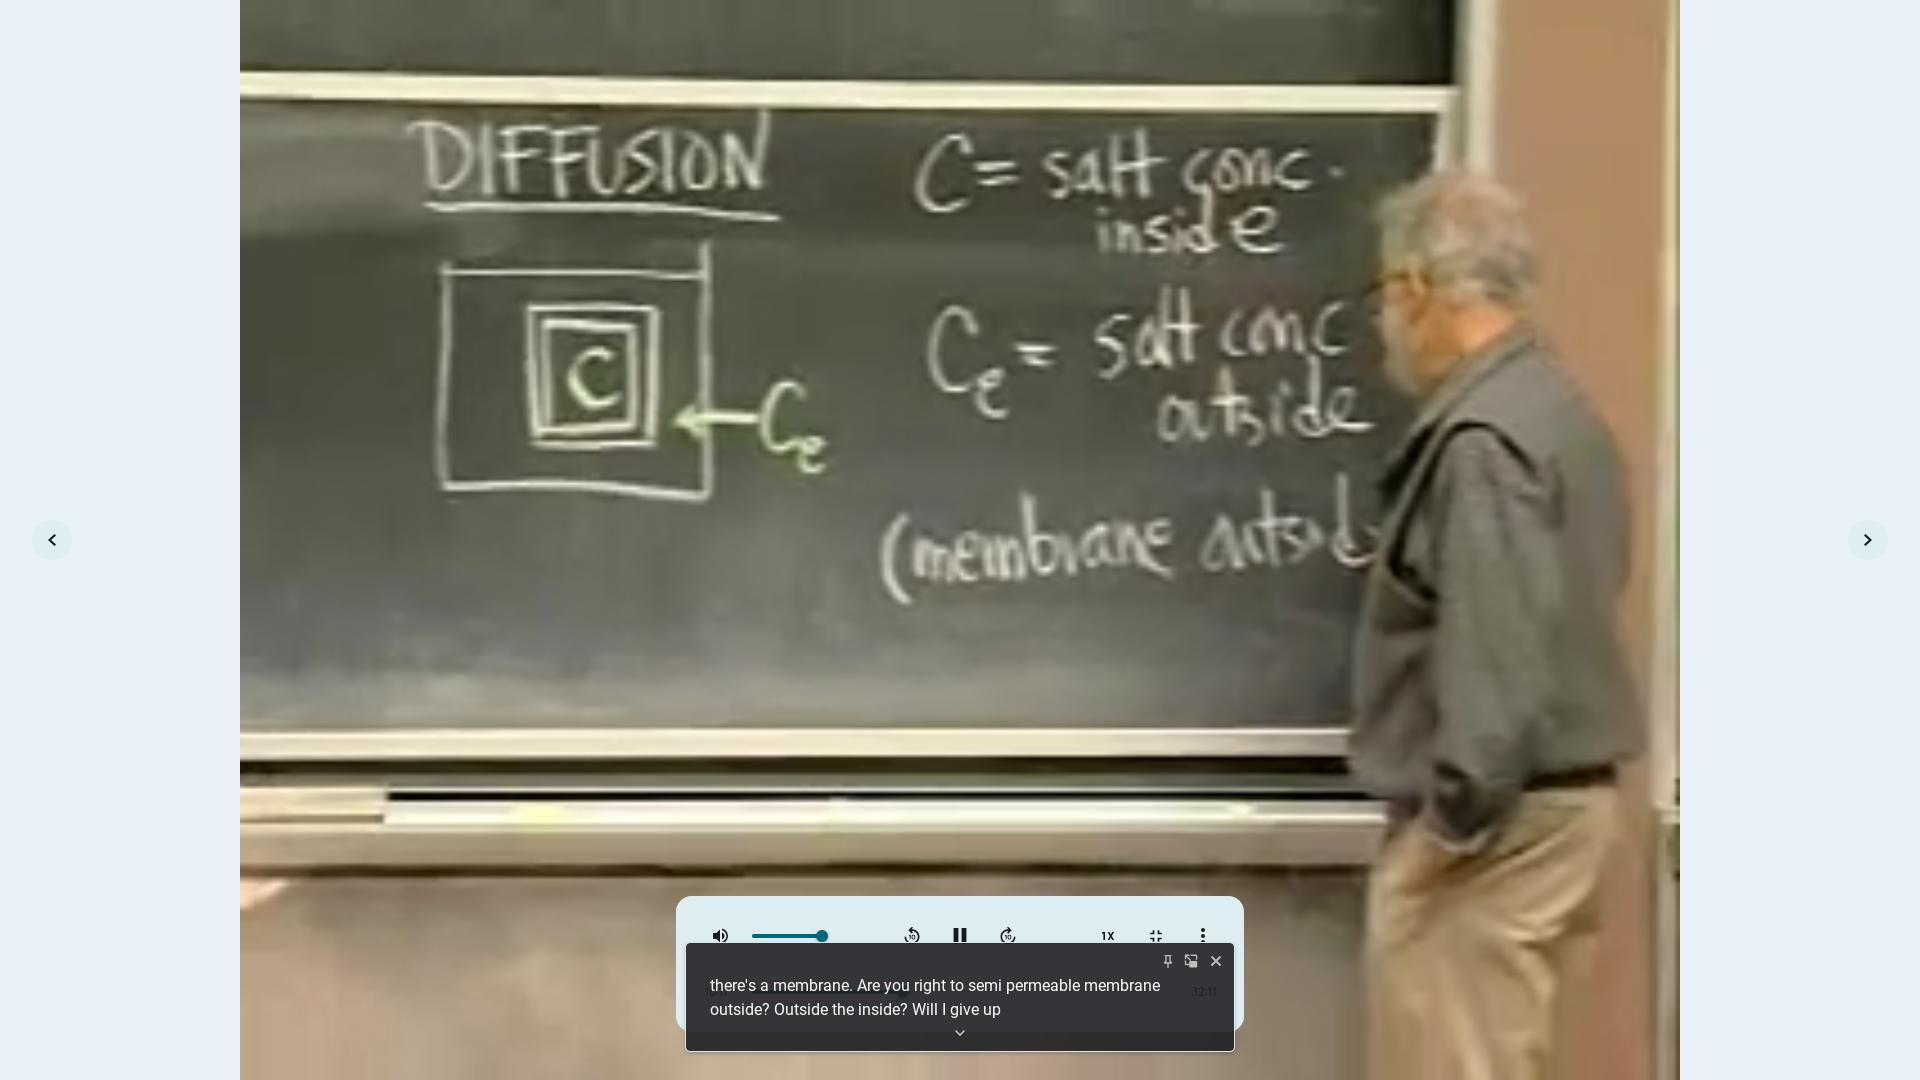 DIFFUSION
C = salt conc.
inside
C
Ce
Ce = salt conc
outside
(membrane outsid
1X
there's a membrane. Are you right to semi permeable membrane
outside? Outside the inside? Will I give up
32:11